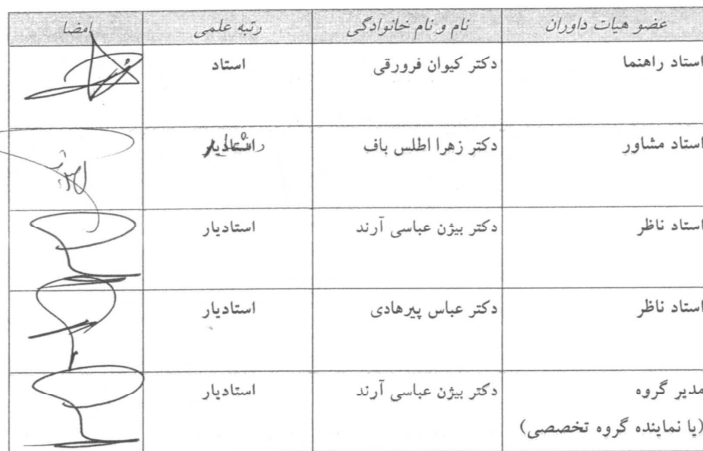 عضو هیات داوران نام و نام خانوادگی رتبه علمی امضا
استاد راهنما دکتر کیوان فرورقی استاد
استاد مشاور دکتر زهرا اطلس باف
استاد ناظر دکتر بیژن عباسی آرند استادیار
استاد ناظر دکتر عباس پیرهادی استادیار
مدیر گروه دکتر بیژن عباسی آرند استادیار
(یا نماینده گروه تخصصی)